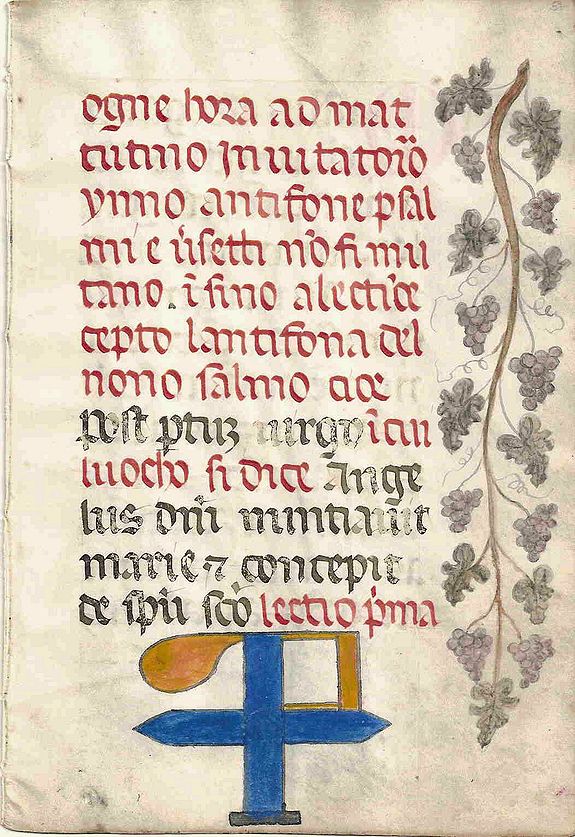 ogne hora ad mat
tutino Jnuitatorĩo
ymno antifone psal
mi e ũsetti nõ si mu
tano. ĩ fino alectiõe
cepto lantifona del
nono salmo cioe
post ptuꝫ uirgo ĩ cui
luocho si dice Ange
lus dñi nuntiauit
marie ⁊ concepit
de spũ scõ lectio pͥma